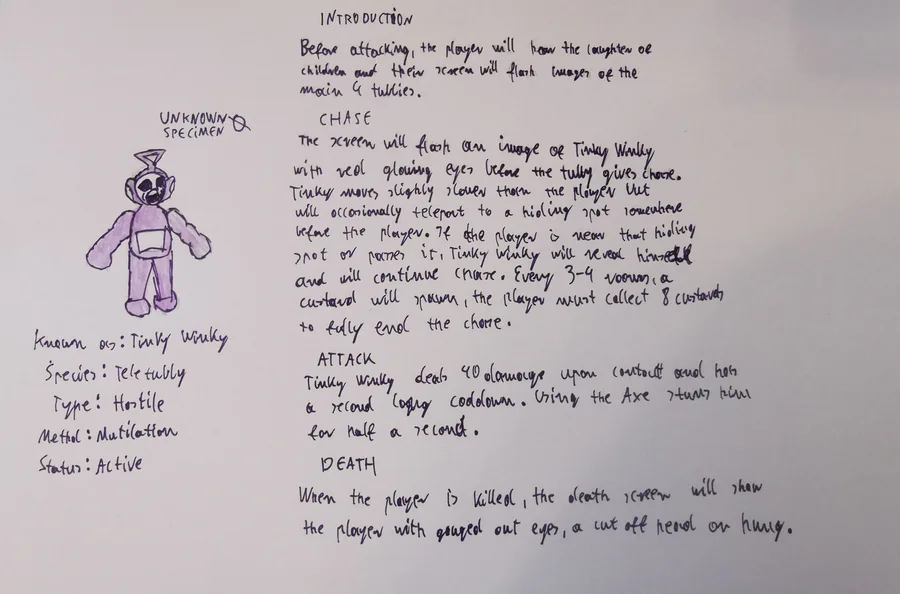 UNKNOWN
SPECIMEN
Known as: Tinky Winky
Species: Teletubby
Type: Hostile
Method: Mutilation
Status: Active
INTRODUCTION
Before attacking, the player will hear the laughter of
children and their screen will flash images of the
main 4 tubbies.
CHASE
The screen will flash an image of Tinky Winky
with red glowing eyes before the tubby gives chase.
Tinky moves slightly slower than the player but
will occasionally teleport to a hiding spot somewhere
before the player. If the player is near that hiding
spot or passes it, Tinky Winky will reveal himself
and will continue chase. Every 3-4 rooms, a
custard will spawn, the player must collect 8 custards
to fully end the chase.
ATTACK
Tinky Winky deals 40 damage upon contact and has
a second long cooldown. Using the Axe stuns him
for half a second.
DEATH
When the player is killed, the death screen will show
the player with gouged out eyes, a cut off head or hung.